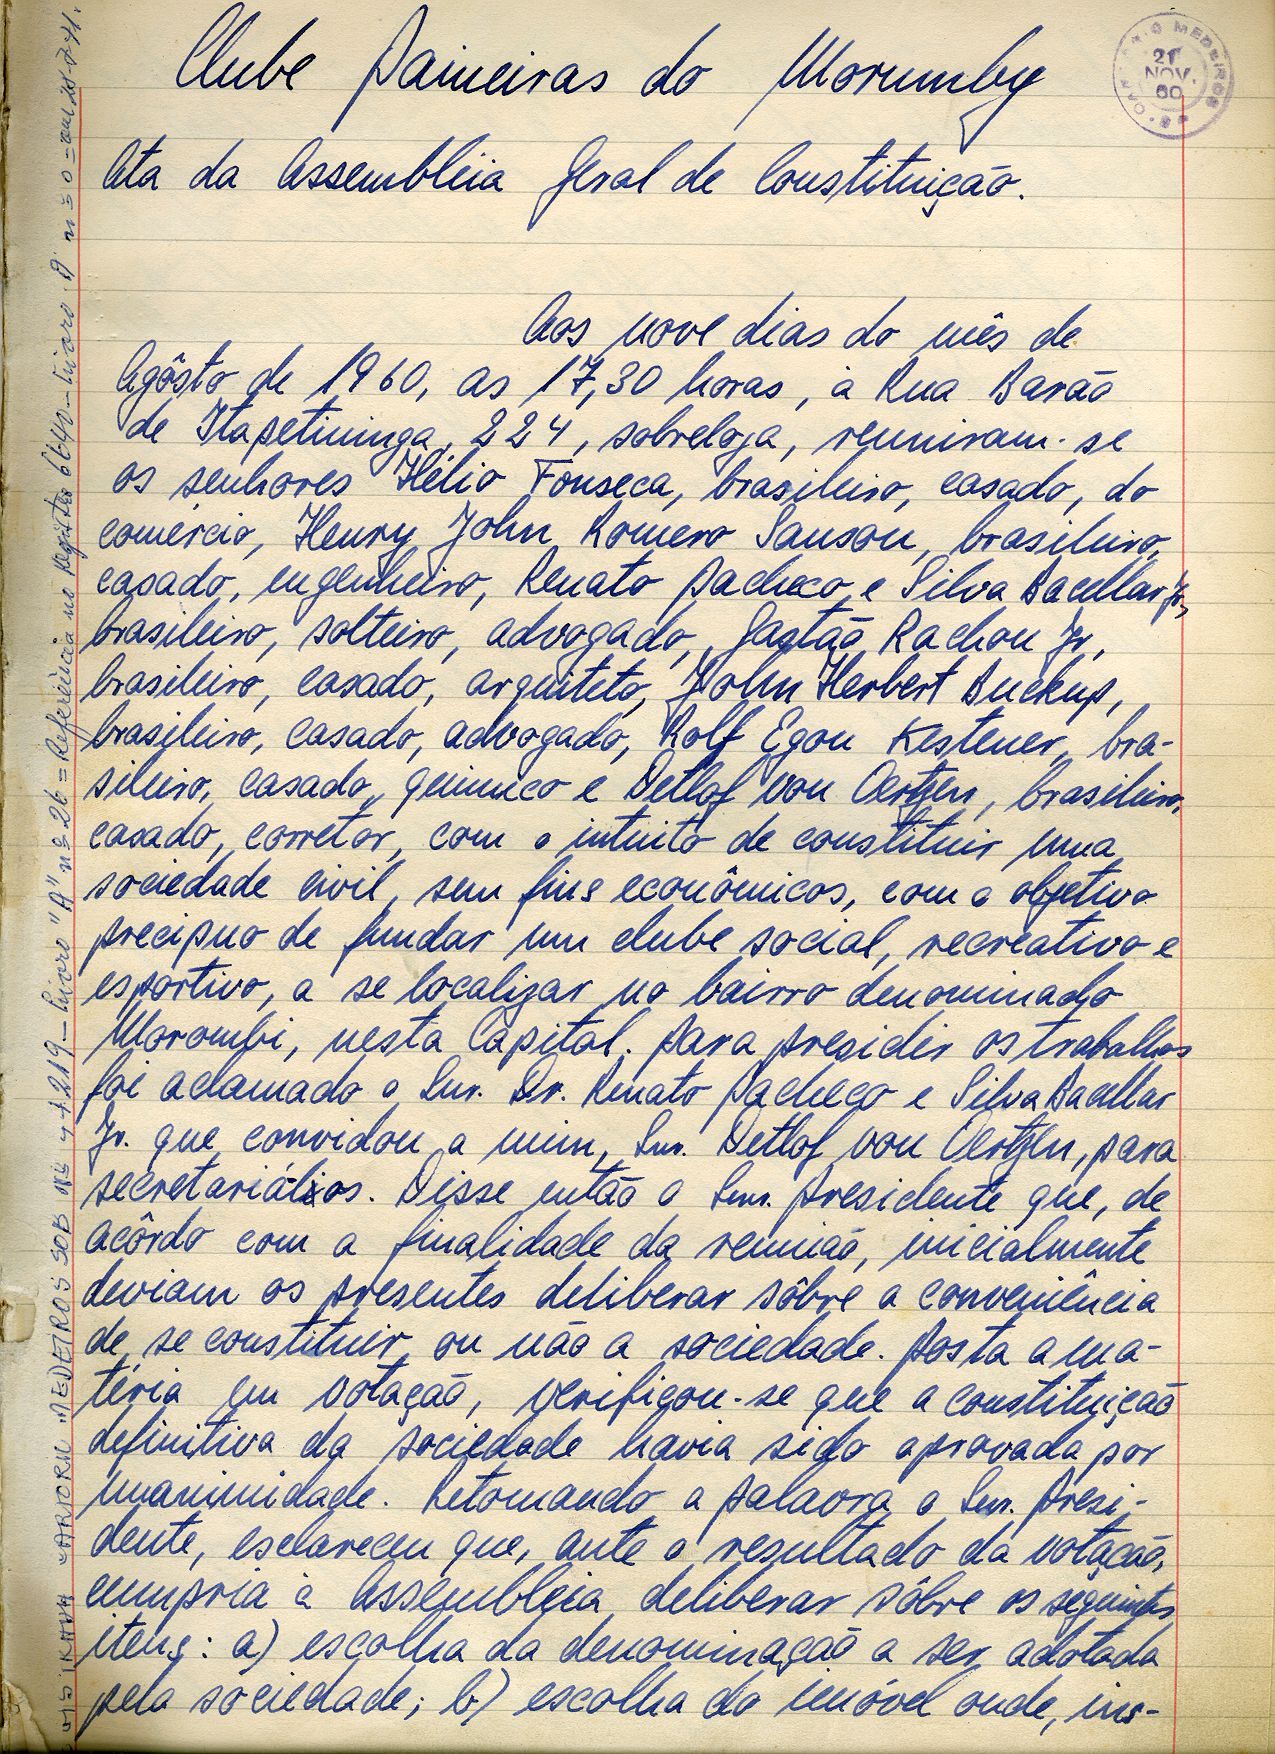 Clube Paineiras do Morumby
21
NOV.
60
MEDEIROS
Ata da Assembléia Geral de Constituição.
Aos nove dias do mês de
Agôsto de 1960, as 17,30 horas, à Rua Barão
de Itapetininga, 224, sobreloja, reuniram-se
os senhores Hélio Fonseca, brasileiro, casado, do
comércio, Henry John Romero Sanson, brasileiro,
casado, engenheiro, Renato Pacheco e Silva Bacellar Jr,
brasileiro, solteiro, advogado, Gastão Rachou Jr,
brasileiro, casado, arquiteto, John Herbert Buckup,
brasileiro, casado, advogado, Rolf Egon Kestener, bra-
sileiro, casado, quimico e Detlof von Oertzen, brasileiro,
casado, corretor, com o intuito de constituir uma
sociedade civil, sem fins econômicos, com o objetivo
precipuo de fundar um clube social, recreativo e
esportivo, a se localizar no bairro denominado
Morombi, nesta Capital. Para presidir os trabalhos
foi aclamado o Snr. Dr. Renato Pacheco e Silva Bacellar
Jr. que convidou a mim, Snr. Detlof von Oertzen, para
secretariál-os. Disse então o Snr. Presidente que, de
acôrdo com a finalidade da reunião, inicialmente
deviam os presentes deliberar sôbre a conveniência
de se constituir ou não a sociedade. Posta a ma-
téria em votação, verificou-se que a constituição
definitiva da sociedade havia sido aprovada por
unanimidade. Retomando a palavra o Snr. Presi-
dente, esclareceu que, ante o resultado da votação,
cumpria à Assembleia deliberar sôbre os seguintes
itens: a) escolha da denominação a ser adotada
pela sociedade; b) escolha do imóvel onde, ins-
MEDEIROS SOB Nº 4219 - Livro "A" nº 26 = Referência no registro 6640 - Livro A nº